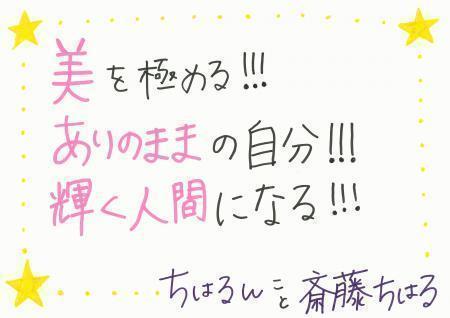 美を極める!!!
ありのままの自分!!!
輝く人間になる!!!
ちはるんこと斎藤ちはる